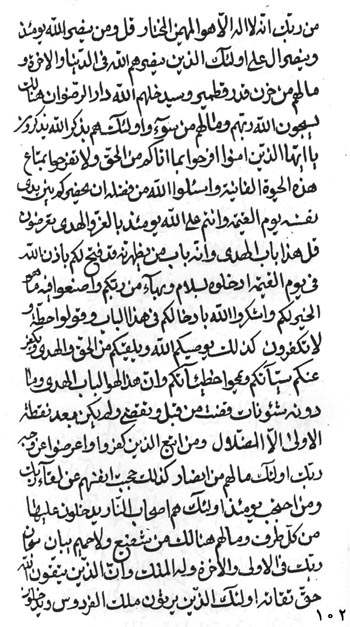 من ربك انه لا اله الا هو المهيمن المختار قل و من ينصر الله يومئذ
و ينصر ال على اولئك الذين ينصرهم الله فى الدنيا و الاخرة و
مالهم من حزن قدر قطمير و سيدخلهم الله دار الرضوان هنالك
يسبحون الله ربهم و مالهم من سوء و اولئك هم بذكر الله يذكرون
يا ايها الذين امنوا افرحوا بما اتاكم من الحق و لا تفرحوا بمتاع
هذه الحيوة الفانية و اسئلوا الله من فضله ان يحضركم بين يدى
نفسه يوم القيمة و انتم على الله يومئذ بالعز و الهدى تعرضون
قل هذا باب الهدى و انه باب من يظهر الله قد فتح لكم باذن الله
فى يوم القيمة ادخلوه بسلام و من ربكم و اصنعوا فيه ما هو
الخير لكم و اشكروا الله بادخالكم فى هذا الباب و قولوا حطة و
لا تكفرون كذلك يوصيكم الله و يلقيكم من الحق و الهدى و يكفر
عنكم سيأتكم و يمحوا خطيئاتكم و ان هذا لهو الباب الهدى و ما
دونه شئونات قضت من قبل و تقضى و لم يكن بعد نقطة
الاولى الا الضلال و من اتبع الذين كفروا و اعرضوا عن وجه
ربك اولئك مالهم من ابصار كذلك حجب انفسهم عن لقاء ربك
و من احتجب يومئذ اولئك هم اصحاب النار يدخلون عليها
من كل طرف و مالهم هنالك من شفيع و لا حميم بيان من
ربك فى الاولى و الاخرة و له الملك و ان الذين يتقون الله
حق تقاته اولئك الذين يرثون ملك الفردوس و يدخلون
١٠٢